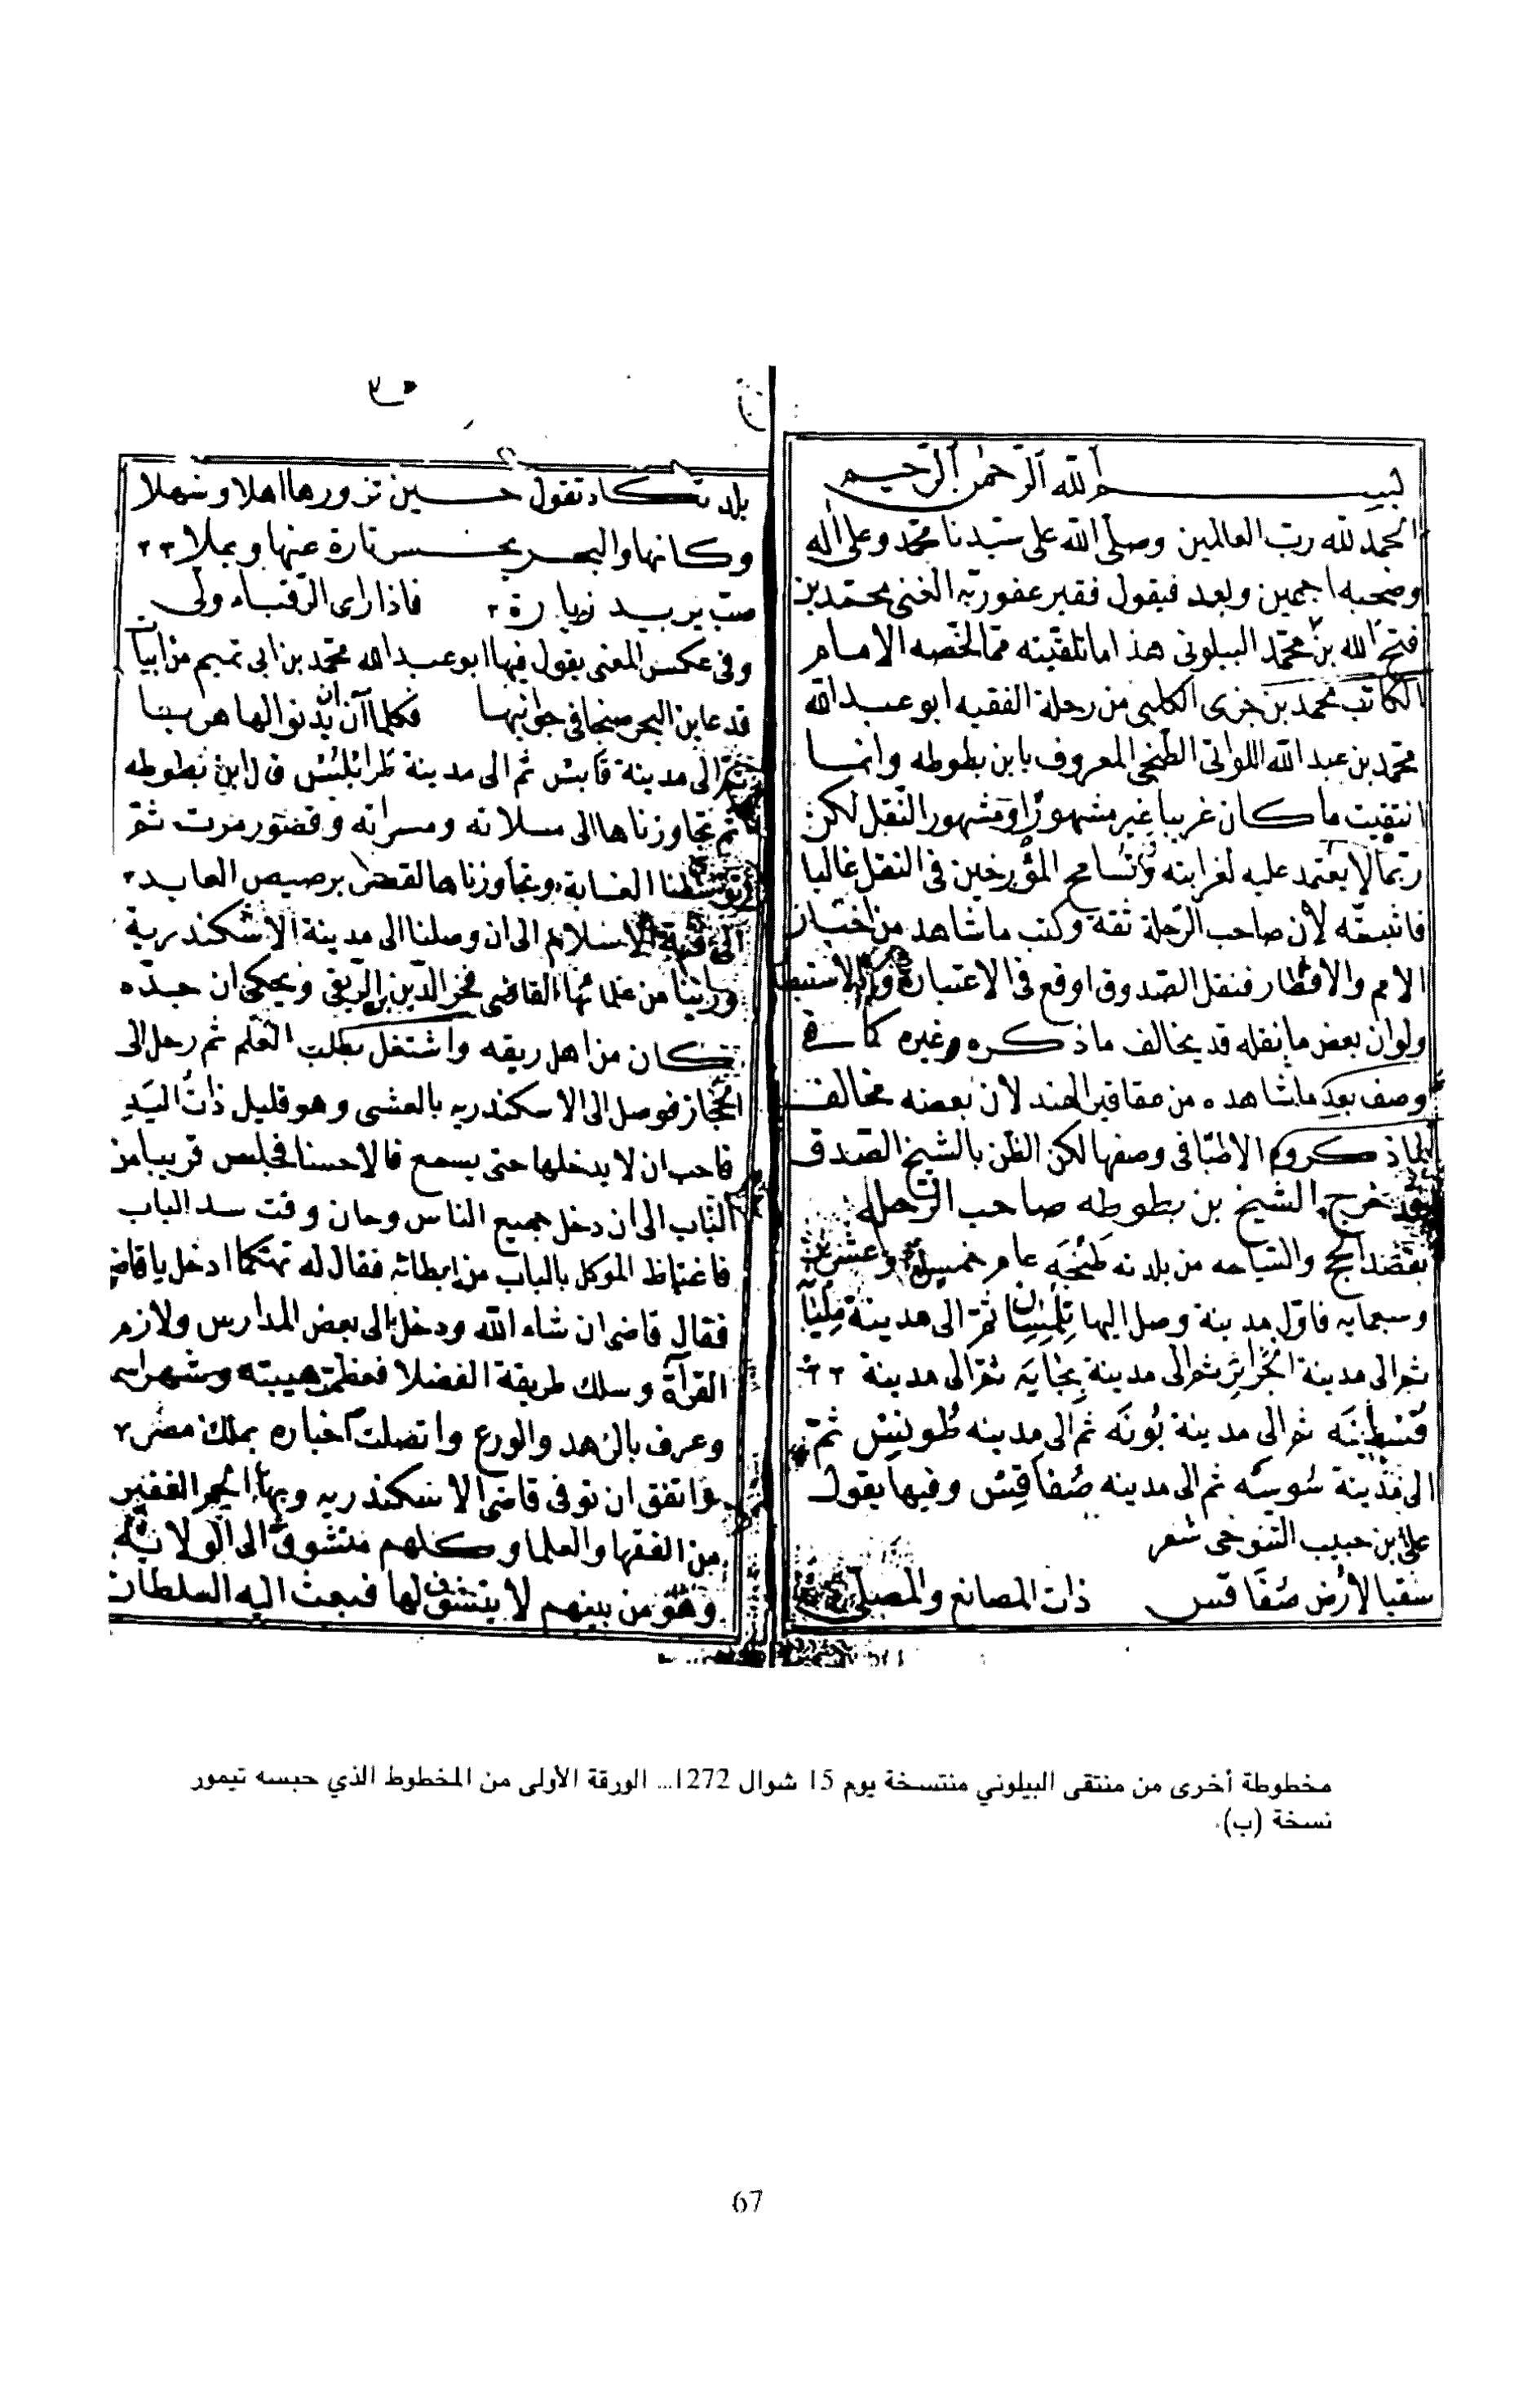 بسم الله الرحمن الرحيم
الحمد لله رب العالمين وصلى الله على سيدنا محمد وعلى اله
وصحبه اجمعين وبعد فيقول فقير عفو ربه الغنى محمد بن
فتح الله بن محمد البيلونى هذا ما تلقيته مما لخصه الامام
الكاتب محمد بن جزى الكلبى من رحلة الفقيه ابو عبد الله
محمد بن عبد الله اللواتى الطنجى المعروف بابن بطوطه وانما
انتقيت ما كان غريبا غير مشهورا او مشهور النقل لكن
ربما لا يعتمد عليه لغرابته وتسامح المؤرخين فى النقل غالبا
فاثبته لان صاحب الرحلة ثقة وكتب ما شاهد من اخبار
الامم والاقطار فنقل الصدوق اوقع فى الاعتبار
ولو ان بعض ما نقله قد يخالف ما ذكره غيره كما فى
وصف بعد ما شاهده من عقاقير الهند لان بعضه مخالف
لما ذكروه الاطبا فى وصفها لكن الظن بالشيخ الصدق
خرج الشيخ بن بطوطه صاحب الرحلة
بقصد الحج والسياحه من بلدته طنجه عام خمسة وعشرين
وسبعمايه فاول مدينة وصل اليها تلمسان ثم الى مدينة مليانا
ثم الى مدينة الجزائر ثم الى مدينة بجايه ثم الى مدينة
قسطينه ثم الى مدينة بونه ثم الى مدينه طونيس ثم
الى مدينة سوسه ثم الى مدينه صفاقس وفيها يقول
على بن حبيب التنوخى شعر
سقيا لارض صفاقس ذات المصانع والمصلى
بلد تكاد تقول حسين تزورها اهلا وسهلا
وكانها والبحر يحسر تارة عنها ويملا
صب يريد زيارة فاذا راى الرقباء ولى
وفى عكس المعنى يقول فيها ابو عبد الله محمد بن ابى تميم من ابيات
قد عاين البحر من جوانبها فكلما ان يدنو لها هربا
ثم الى مدينة قابس ثم الى مدينة طرابلس قال ابن بطوطه
ثم تجاوزناها الى مسلاته ومسراته وقصور سرت ثم
توسطنا الغابة وتجاوزناها لقصر برصيص العابد
الى قبة الاسلام الى ان وصلنا الى مدينة الاسكندرية
وراينا من علمائها القاضى فخر الدين بن الريغى ويحكى ان جده
كان من اهل ريغه واشتغل بطلب العلم ثم رحل الى
الحجاز فوصل الى الاسكندريه بالعشى وهو قليل ذات اليد
فاحب ان لا يدخلها حتى يسمع فالا حسنا فجلس قريبا من
الباب الى ان دخل جميع الناس وحان وقت سد الباب
فاغتاظ الموكل بالباب من ابطائه فقال له تهتكما ادخل يا قاضى
فقال قاضى ان شاء الله ودخل الى بعض المدارس ولازم
القراة وسلك طريقة الفضلا فعظمت هيبته وشهر اسمه
وعرف بالزهد والورع واتصلت اخباره بملك مصر
واتفق ان توفى قاضى الاسكندريه وبها الجم الغفير
من الفقها والعلما وكلهم متشوق الى الولاية
وهو من بينهم لا يتشوق لها فبعث اليه السلطان
مخطوطة أخرى من منتقى البيلوني منتسخة يوم 15 شوال 1272... الورقة الأولى من المخطوط الذي حبسه تيمور
نسخة (ب).
67